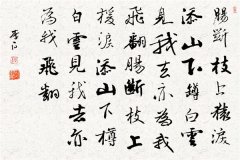 腸斷枝上猿淚
添山下樽白雲
見我去亦為我
飛翻腸斷枝上
猿淚添山下樽
白雲見我去亦
為我飛翻